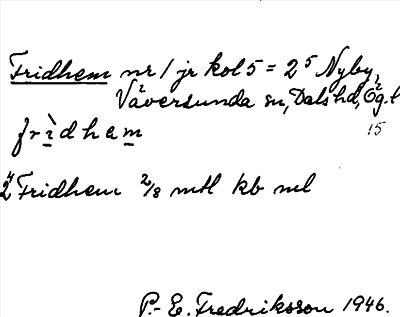 Fridhem nr 1 jr kol 5 = 2⁵ Nyby,
Väversunda sn, Dals hd, Ög. l
frìdham 15
Fridhem 2/8 mtl kb ml
P.-E. Fredriksson 1946.